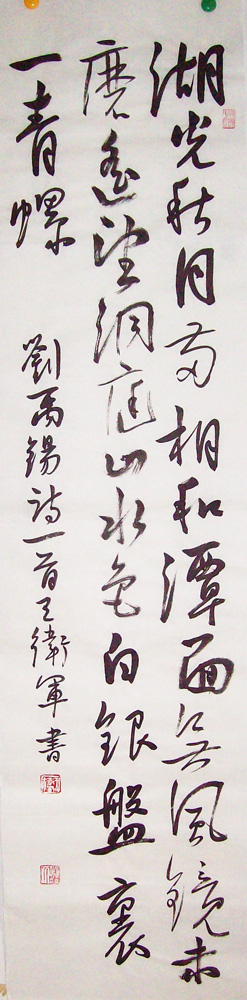 湖光秋月兩相和潭面無風鏡未
磨遙望洞庭山水色白銀盤裏
一青螺
劉禹錫詩一首王衛軍書